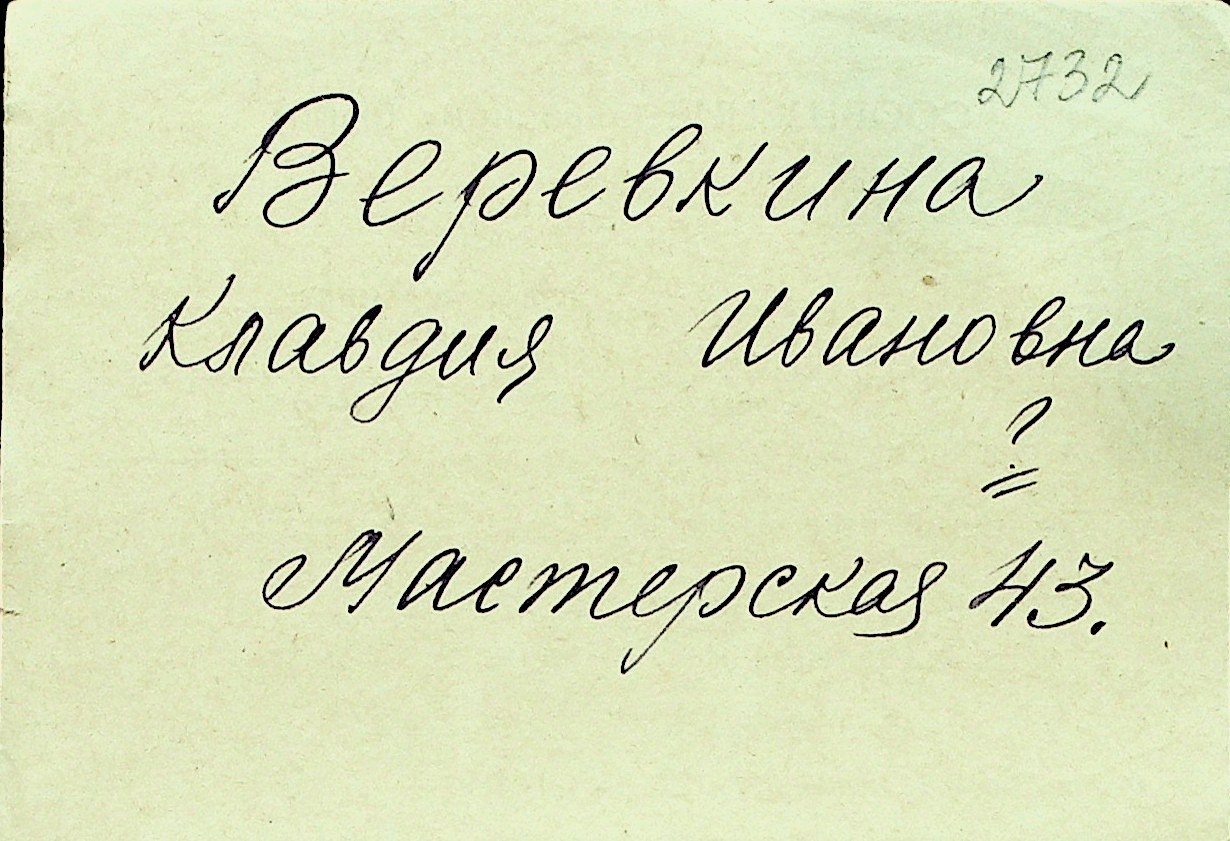 2732
Веревкина
Клавдия Ивановна
?
Мастерская 43.